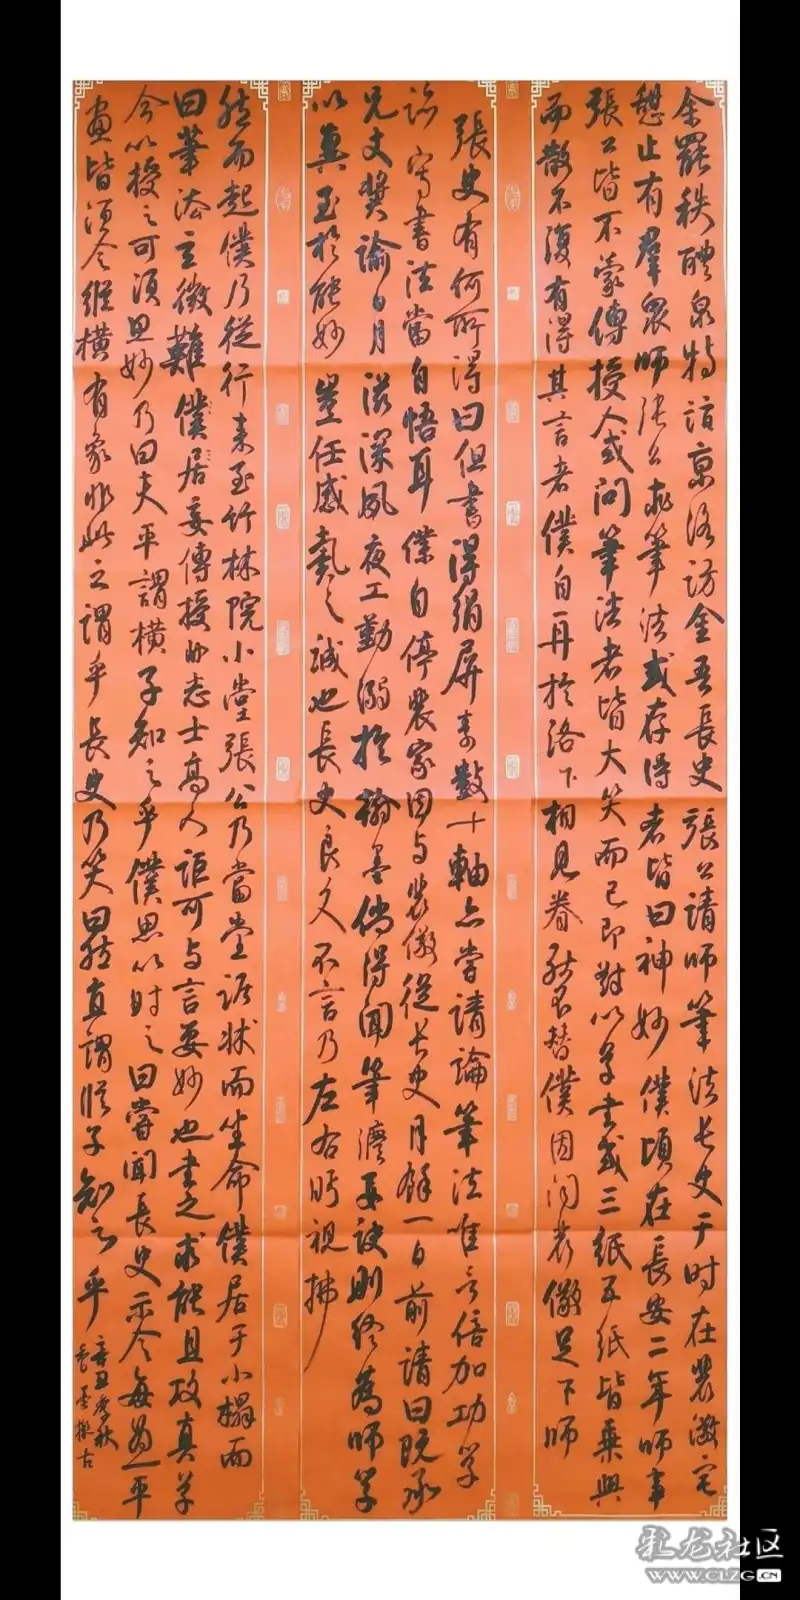 余罷秩醴泉特詣京洛訪金吾長史張公請師筆法長史于時在裴儆宅
憩止有羣眾師張公求筆法或存得者皆曰神妙僕頃在長安二年師事
張公皆不蒙傳授人或問筆法者皆大笑而已即對以草書或三紙五紙皆乘興
而散不復有得其言者僕自再於洛下相見眷然不替僕因問裴儆足下師
張史有何所得曰但書得絹屏素數十軸亦嘗請論筆法唯言倍加功學
臨寫書法當自悟耳僕自停裴家因与裴儆從長史月餘一日前請曰既承
兄丈獎諭日月滋深夙夜工勤溺於翰墨倘得聞筆法要訣則終為師學
以冀至於能妙豈任感戴之誠也長史良久不言乃左右盻視拂
然而起僕乃從行来至竹林院小堂張公乃當堂踞牀而坐命僕居于小榻而
曰筆法玄微難僕居妄傳授非志士高人詎可与言要妙也書之求能且攻真草
今以授之可須思妙乃曰夫平謂橫子知之乎僕思以對之曰嘗聞長史示令每為一平
畫皆須令縱橫有象非此之謂乎長史乃笑曰然直謂縱子知之乎
辛丑季秋
墨撫古
乳龙社区
WWW.CLZG.CN